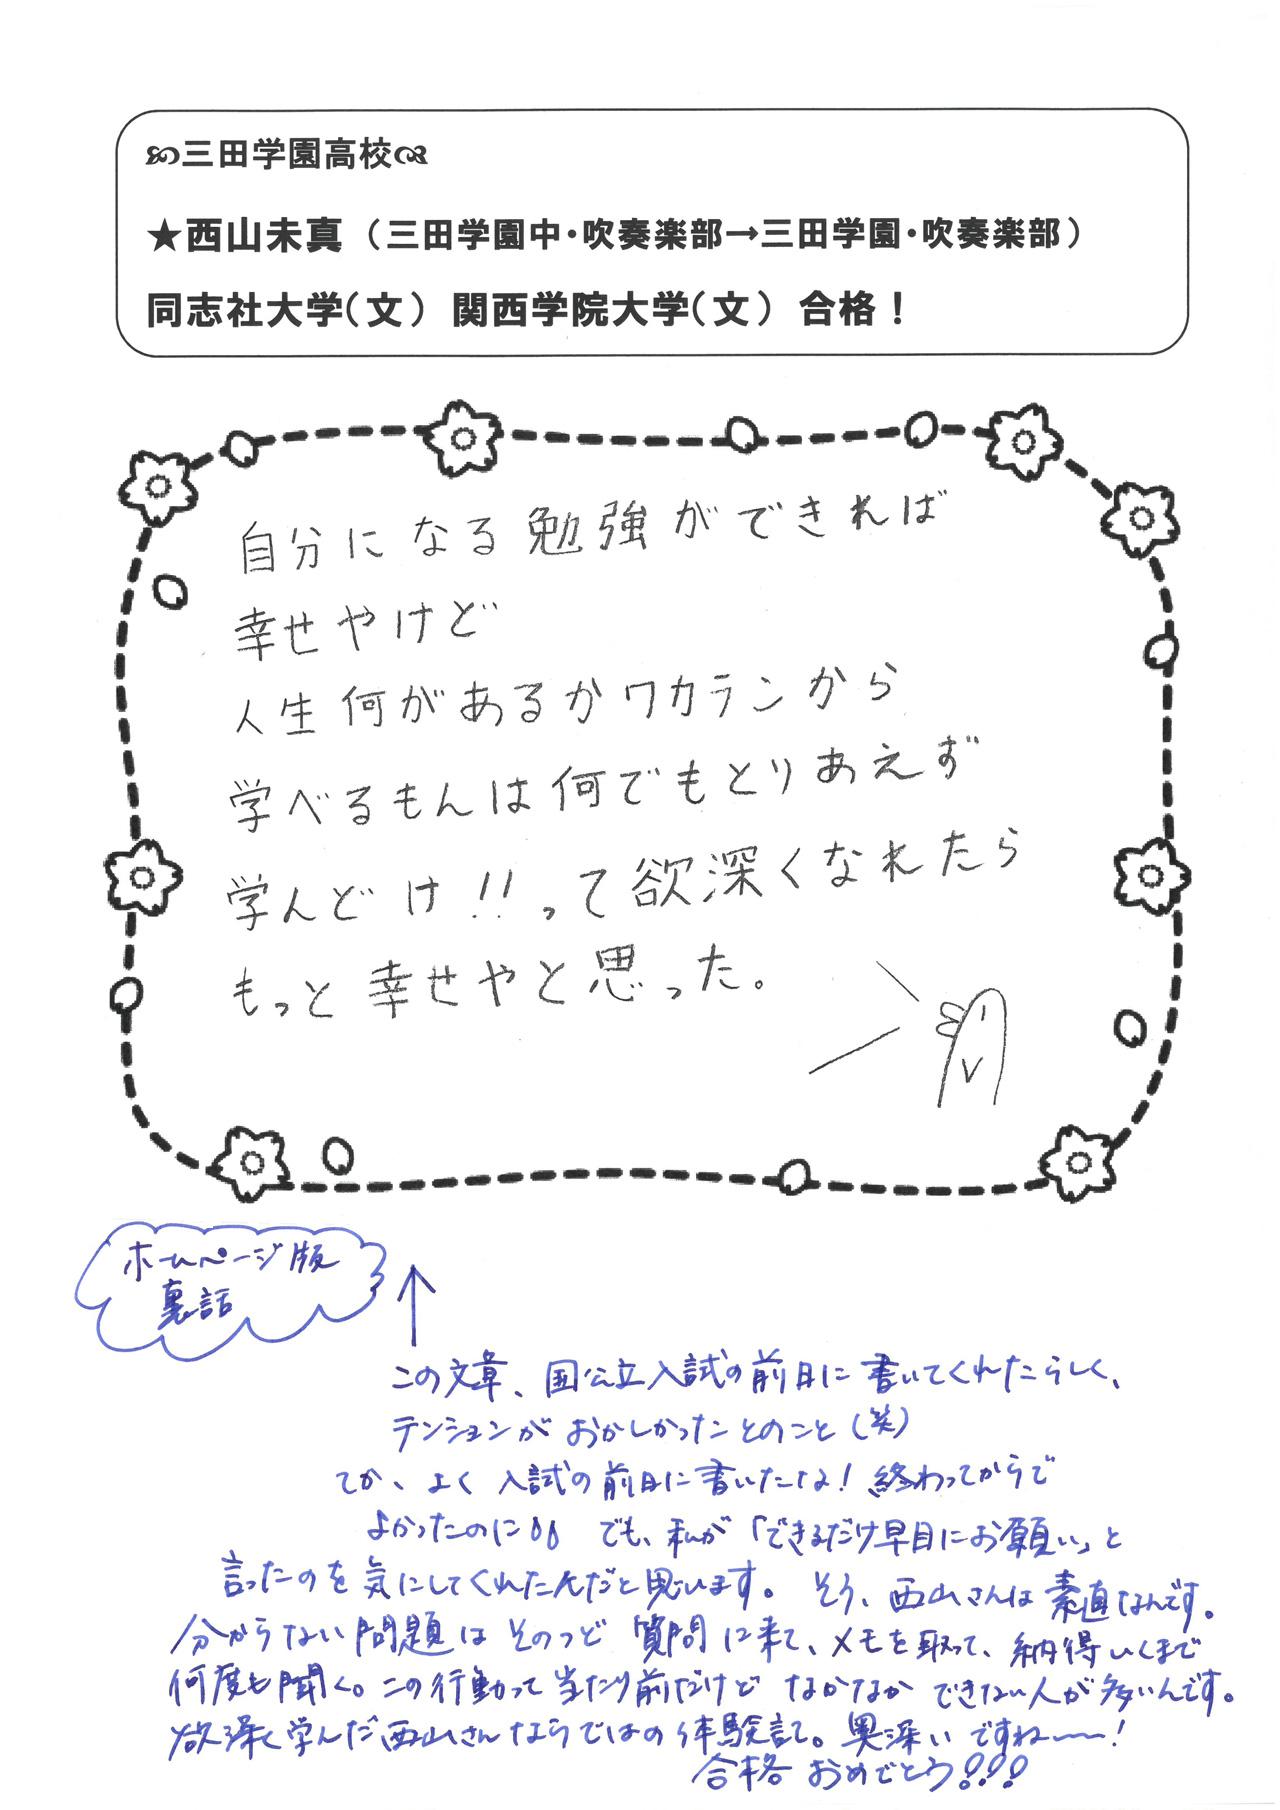 三田学園高校
★西山未真（三田学園中・吹奏楽部→三田学園・吹奏楽部）
同志社大学（文） 関西学院大学（文） 合格！
自分になる勉強ができれば
幸せやけど
人生何があるかワカランから
学べるもんは何でもとりあえず
学んどけ!!って欲深くなれたら
もっと幸せやと思った。
ホームページ版
裏話
この文章、国公立入試の前日に書いてくれたらしく、
テンションがおかしかったとのこと（笑）
てか、よく入試の前日に書いたな！終わってからで
よかったのに でも、私が「できるだけ早目にお願い」と
言ったのを気にしてくれたんだと思います。そう、西山さんは素直なんです。
分からない問題はそのつど質問に来て、メモを取って、納得いくまで
何度も聞く。この行動って当たり前だけどなかなかできない人が多いんです。
欲深く学んだ西山さんならではの体験記。奥深いですね〜〜！
合格おめでとう!!!